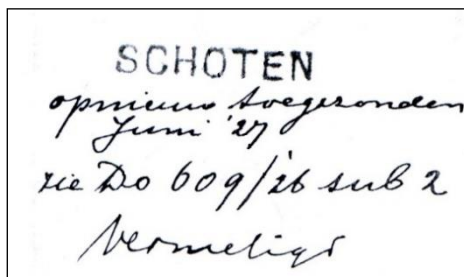 SCHOTEN
opnieuw toegezonden
Juni '27
zie Do 609/26 sub 2